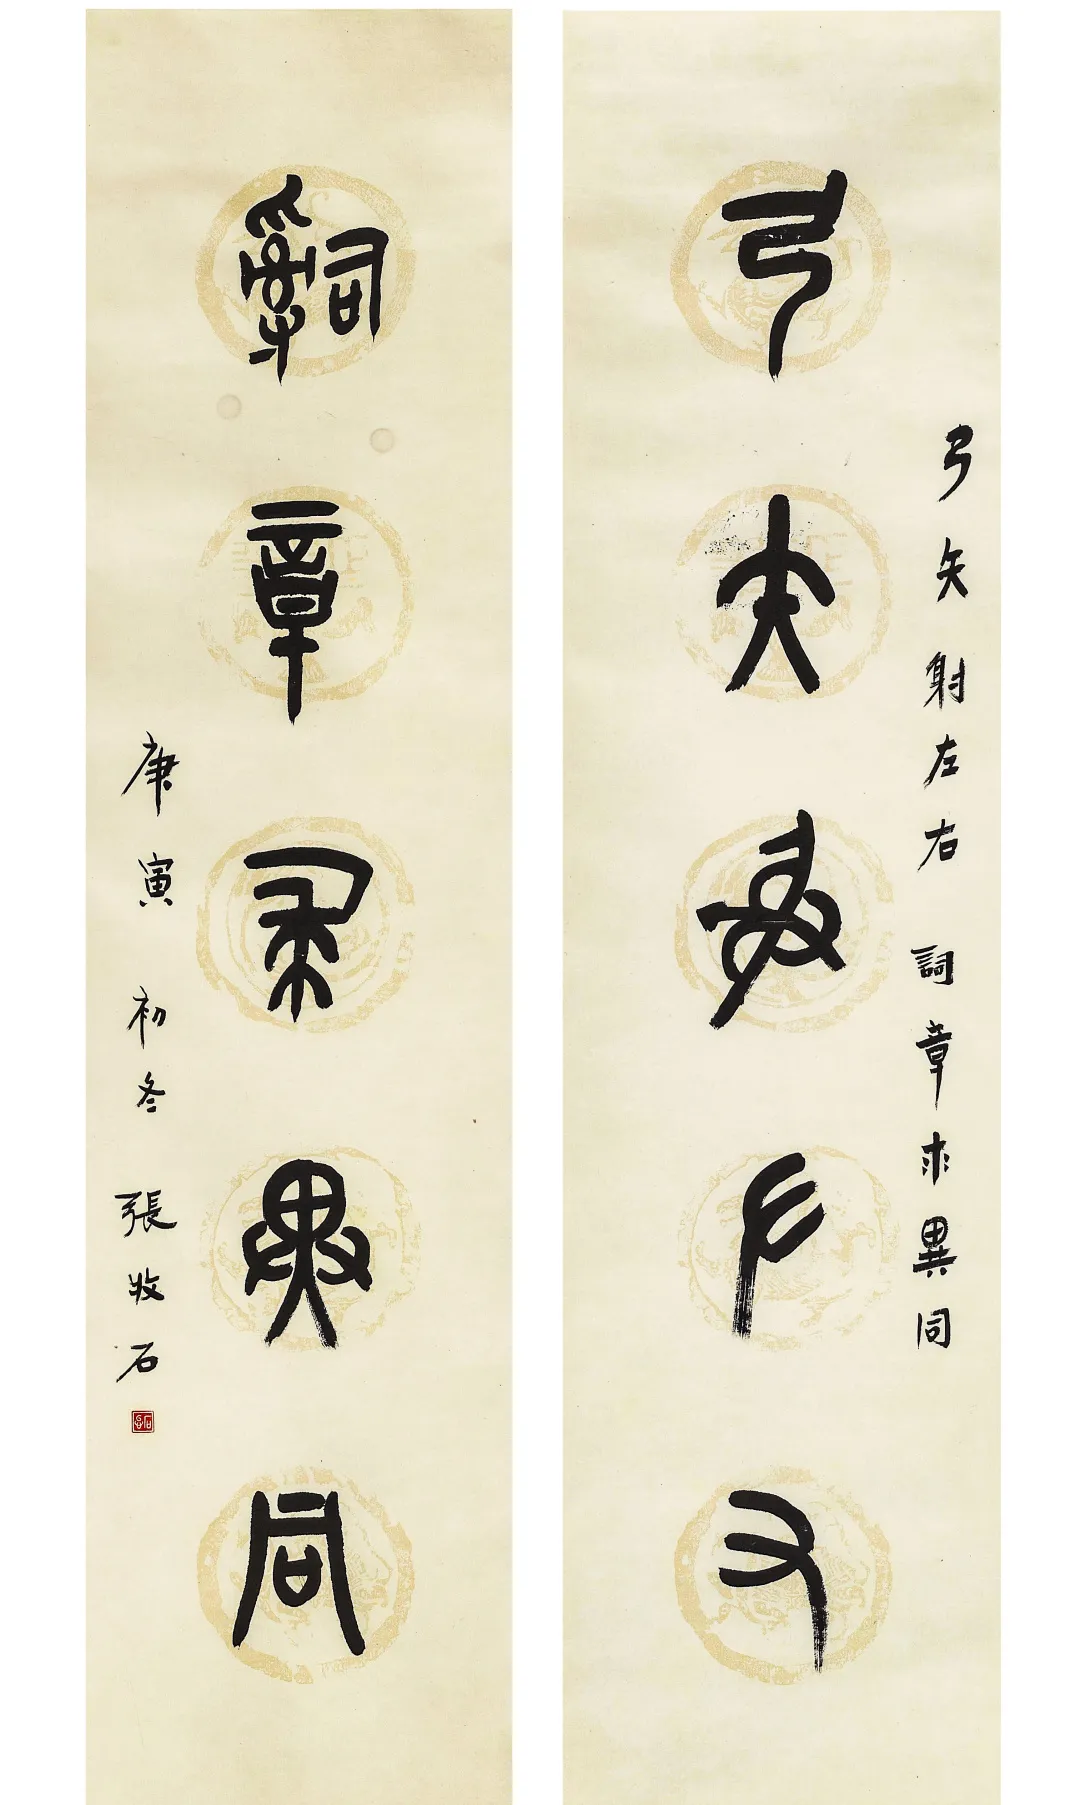 弓矢射左右 詞章求異同
弓矢射左右
詞章求異同
庚寅 初冬 張牧石